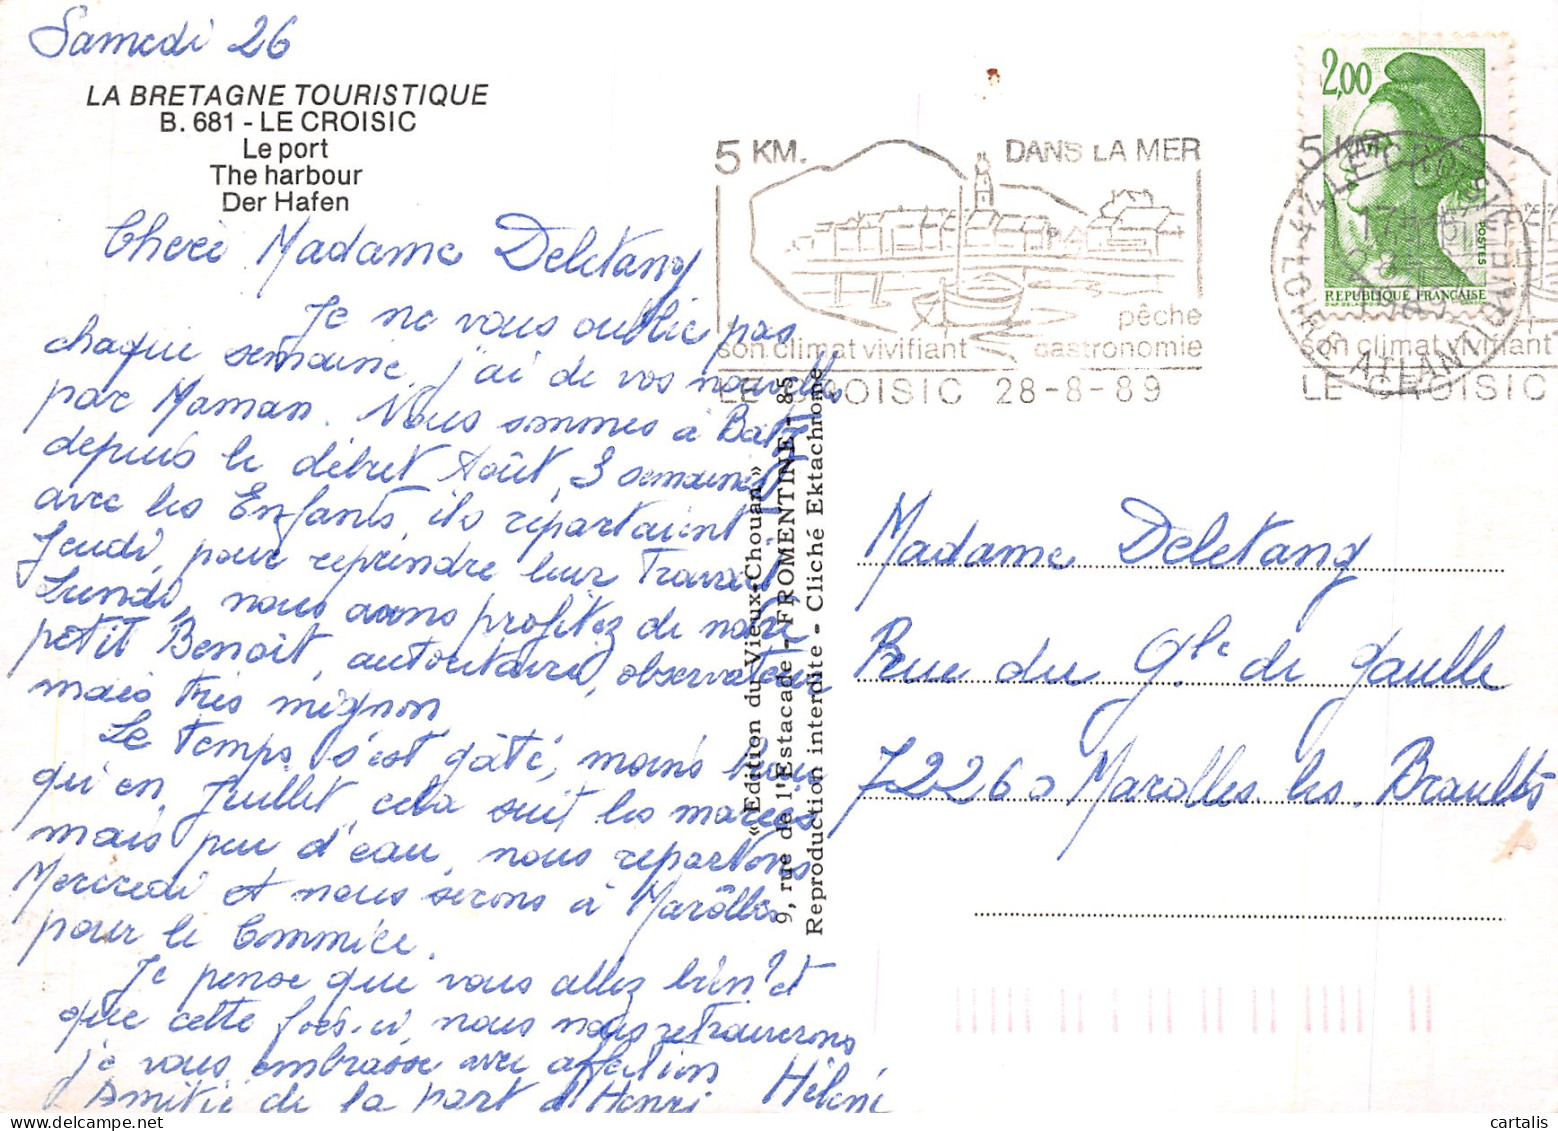 Samedi 26
LA BRETAGNE TOURISTIQUE
B. 681 - LE CROISIC
Le port
The harbour
Der Hafen
Chère Madame Deletang
Je ne vous oublie pas
chaque semaine, j'ai de vos nouvelles
par Maman. Nous sommes à Batz
depuis le début Août, 3 semaines
avec les Enfants, ils repartaient
Jeudi, pour reprendre leur Travail
Lundi, nous avons profitez de notre
petit Benoît, autoritaire, observateur
mais très mignon
Le temps s'est gâté, moins beau
qu'en Juillet, cela suit les marées
mais peu d'eau, nous repartons
Mercredi et nous serons à Marôlles
pour le Commice.
Je pense que vous allez bien? et
que cette fois-ci, nous nous retrouverons
je vous embrasse avec affection
Hélène
Amitié de la part d'Henri
«Edition du Vieux-Chouan»
9, rue de l'Estacade - FROMENTINE - 85
Reproduction interdite - Cliché Ektachrome
5 KM. DANS LA MER
pêche
son climat vivifiant gastronomie
LE CROISIC 28-8-89
2,00
POSTES
REPUBLIQUE FRANÇAISE
5 KM
44 LE CROISIC
17H
1989
LOIRE ATLANTIQUE
son climat vivifiant
LE CROISIC
Madame Deletang
Rue du Gle de Gaulle
72260 Marolles les Braults
cartalis